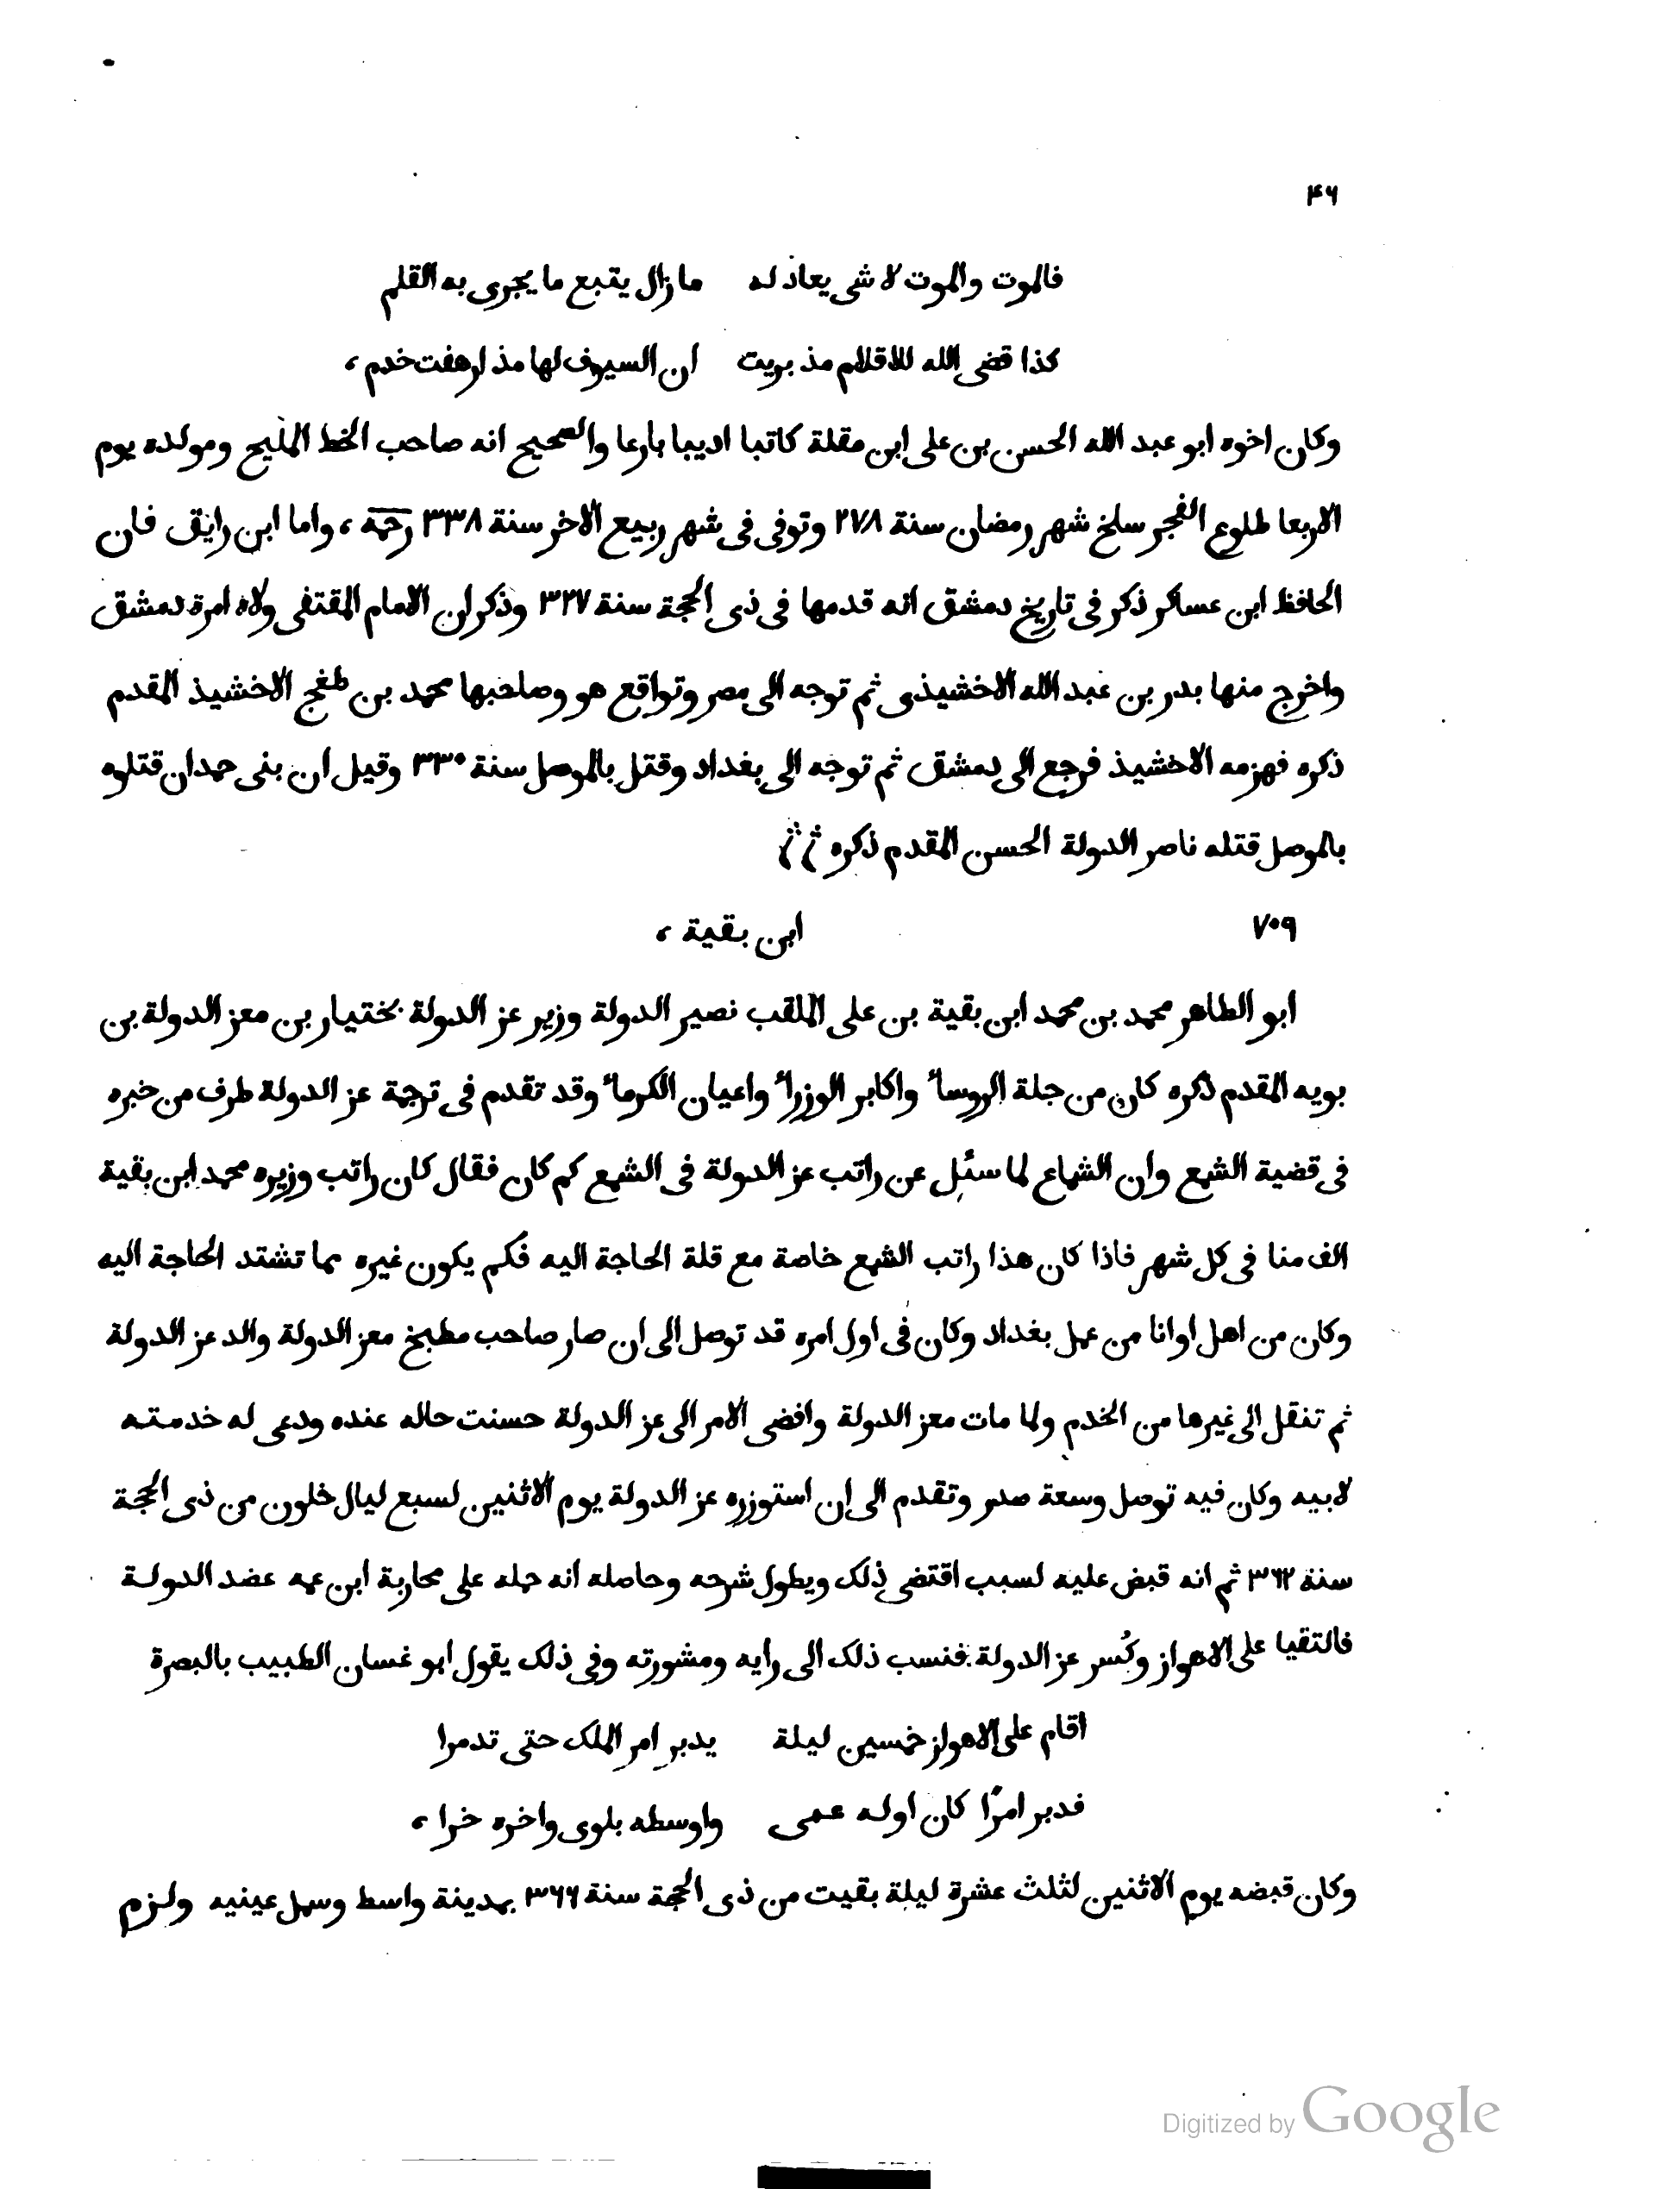 ۴۶
فالموت والموت لا شى يعادله ما زال يتبع ما يجرى به القلم
كذا قضى الله للاقلام مذ بريت ان السيوف لها مذ ارهفت خدم ،
وكان اخوه ابو عبد الله الحسن بن على ابن مقلة كاتبا اديبا بارعا والصحيح انه صاحب الخط المليح ومولده يوم
الاربعا طلوع الفجر سلخ شهر رمضان سنة ٢٧٨ وتوفى فى شهر ربيع الاخر سنة ٣٣٨ رحمه ، واما ابن رايق فان
الحافظ ابن عساكر ذكر فى تاريخ دمشق انه قدمها فى ذى الحجة سنة ٣٢٧ وذكر ان الامام المقتفى ولاه امرة دمشق
واخرج منها بدر بن عبد الله الاخشيذى ثم توجه الى مصر وتواقع هو وصاحبها محمد بن طغج الاخشيذ المقدم
ذكره فهزمه الاخشيذ فرجع الى دمشق ثم توجه الى بغداد وقتل بالموصل سنة ٣٣٠ وقيل ان بنى حمدان قتلوه
بالموصل قتله ناصر الدولة الحسن المقدم ذكره
٧٠٩ ابن بقية ،
ابو الطاهر محمد بن محمد ابن بقية بن على الملقب نصير الدولة وزير عز الدولة بختيار بن معز الدولة بن
بويه المقدم ذكره كان من جلة الروساء واكابر الوزراء واعيان الكرماء وقد تقدم فى ترجمة عز الدولة طرف من خبره
فى قضية الشمع وان الشماع لما سئل عن راتب عز الدولة فى الشمع كم كان فقال كان راتب وزيره محمد ابن بقية
الف منا فى كل شهر فاذا كان هذا راتب الشمع خاصة مع قلة الحاجة اليه فكم يكون غيره مما تشتد الحاجة اليه
وكان من اهل اوانا من عمل بغداد وكان فى اول امره قد توصل الى ان صار صاحب مطبخ معز الدولة والد عز الدولة
ثم تنقل الى غيرها من الخدم ولما مات معز الدولة وافضى الامر الى عز الدولة حسنت حاله عنده ودعى له خدمته
لابيه وكان فيه توصل وسعة صدر وتقدم الى ان استوزره عز الدولة يوم الاثنين لسبع ليال خلون من ذى الحجة
سنة ٣٦٢ ثم انه قبض عليه لسبب اقتضى ذلك ويطول شرحه وحاصله انه حمله على محاربة ابن عمه عضد الدولة
فالتقيا على الاهواز وكُسر عز الدولة فنسب ذلك الى رايه ومشورته وفى ذلك يقول ابو غسان الطبيب بالبصرة
اقام على الاهواز خمسين ليلة يدبر امر الملك حتى تدمرا
فدبر امرًا كان اوله عمى واوسطه بلوى واخره خرا ،
وكان قبضه يوم الاثنين لثلث عشرة ليلة بقيت من ذى الحجة سنة ٣٦٦ بمدينة واسط وسمل عينيه ولزم
Digitized by Google